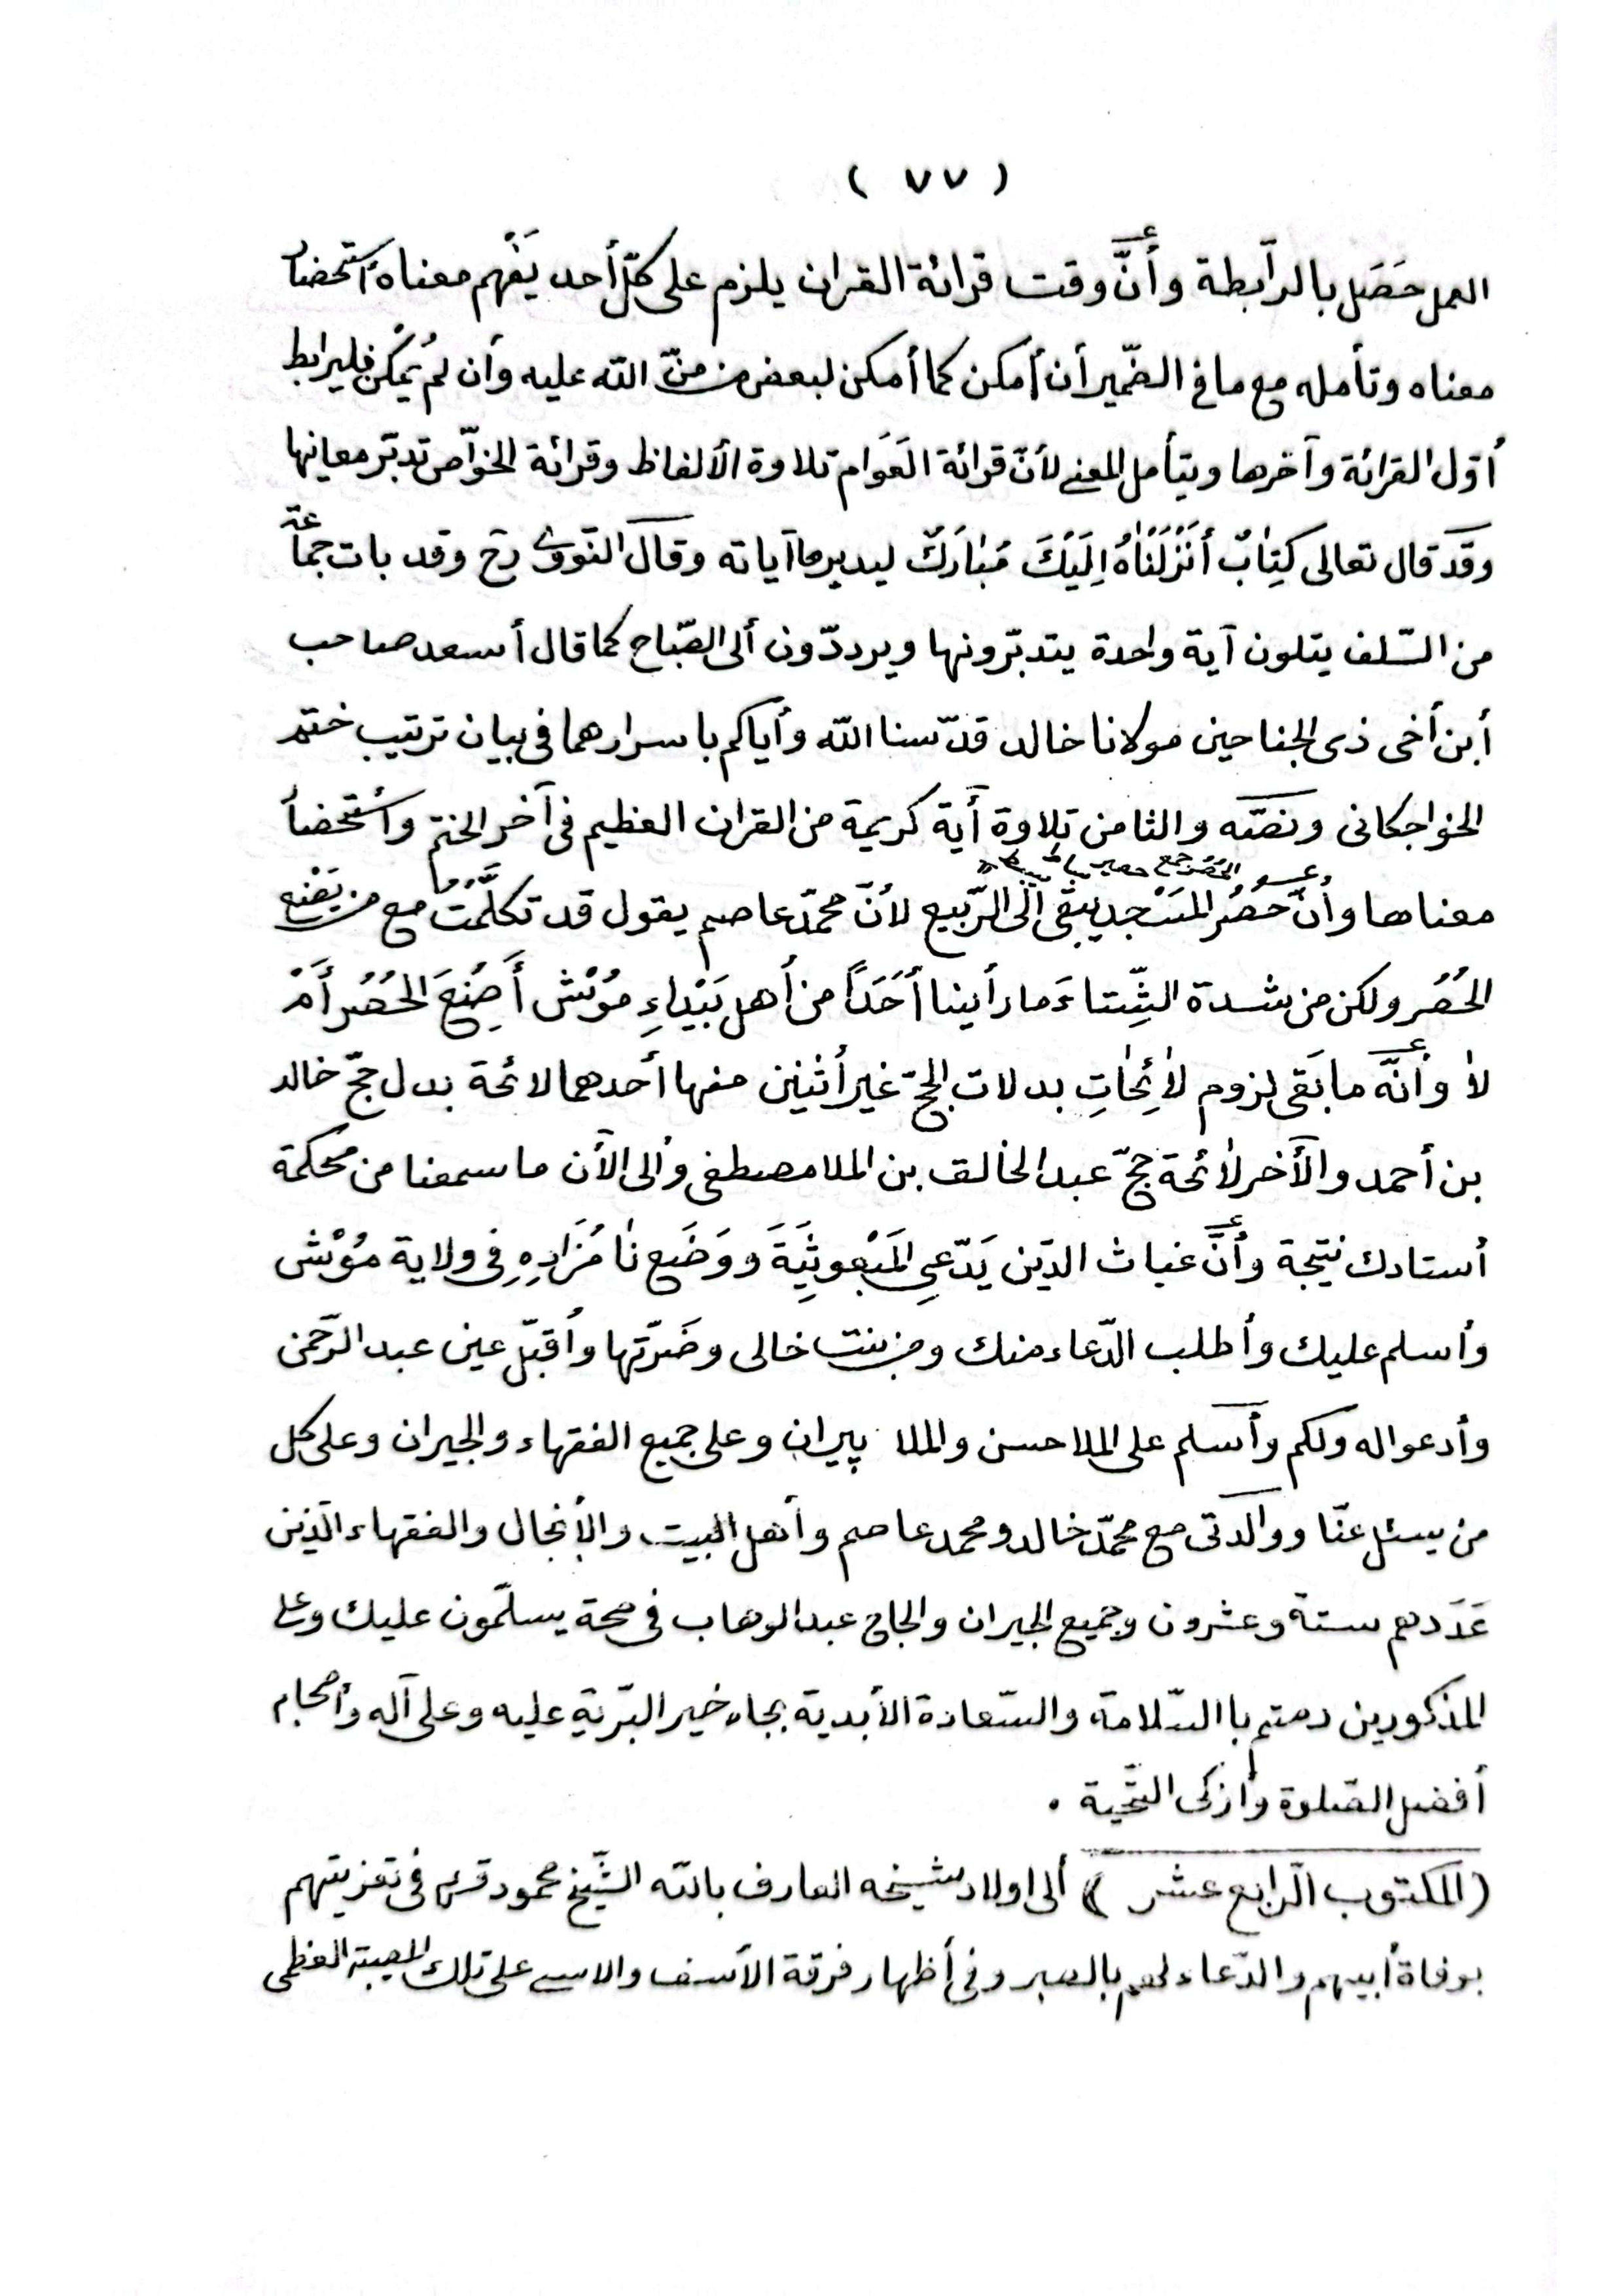 ( ٧٧ )
العمل حَصَل بالرّابطة وأنَّ وقت قرائة القران يلزم على كلّ أحد يَفْهم معناه أستحضار
معناه وتأمله مع ما فى الضّمير أن أمكن كما أمكن لبعض من منّ الله عليه وأن لمْ يُمْكن فليرابط
أوّل القرائة وآخرها ويتأمل المعنى لأنّ قرائة العَوَام تلاوة الألفاظ وقرائة الخوّاص تدبّر معانيها
وقَد قال تعالى كِتٰابٌ أَنْزَلْنٰاهُ اِلَيْكَ مُبٰارَكٌ ليدبروا آياته وقال النّووى رح وقد بات جماعة
من السّلف يتلون آية واحدة يتدبّرونها ويردّدون ألى الصّباح كما قال أسعد صاحب
أبن أخى ذى الجناحين مولانا خالد قدّسنا الله وأياكم باسرارهما فى بيان ترتيب ختم
الخواجكانى ونصّه والثامن تلاوة أية كريمة من القران العظيم فى آخر الختم وأستحضار
معناها وأنّ حُصُر المَسْجد يبقى إلى الرّبيع لأنّ محمّد عاصم يقول قد تكلّمْتُ مع من يَصْنع
الحُصُر ولكن من شدة الشِّتاءَ ما رأينا أحَدًا من أهل بَيْداءِ مُوْش أَصُنِعَ الحُصُر أَمْ
لاٰ وأنّه ما بَقى لزوم لاٰئِحٰاتِ بدلات الحجّ غير أثنين منها أحدهما لائحة بدل حجّ خالد
بن أحمد والأخر لاٰئحة حجّ عبد الخالق بن الملا مصطفى وألى الآن ما سمعنا من محكمة
أستادك نتيجة وأنَّ غياث الدّين يَدّعىِ المَبْعوثِيَةَ ووَضَع نٰا مُزَادِهِ فى ولاية مُوْش
وأسلم عليك وأطلب الدّعاء منك ومن بنت خالى وضَرّتها وأقبّل عين عبد الرّحمن
وأدعوا له ولكم وأسلم على الملا حسن والملا پيران وعلى جميع الفقهاء والجيران وعلى كل
من يسئل عنّا ووالدتى مع محمّد خالد ومحمد عاصم وأهل البيت والأنجال والفقهاء الّذين
عَدَدهم ستة وعشرون وجميع الجيران والحاج عبد الوهاب فى صحة يسلّمون عليك وعلى
المذكورين دمتم باالسّلامة والسّعادة الأبدية بجاه خير البّرية عليه وعلى آله وأصحابه
أفضل الصّلوة وأزكى التّحية .
(المكتوب الرّابع عشر ) ألى اولاد شيخه العارف بالله الشّيخ محمود قس فى تعزيتهم
بوفاة أبيهم والدّعاء لهم بالصبر وفى أظهار فرقة الأسف والاسى على تلك المصيبة العظمى